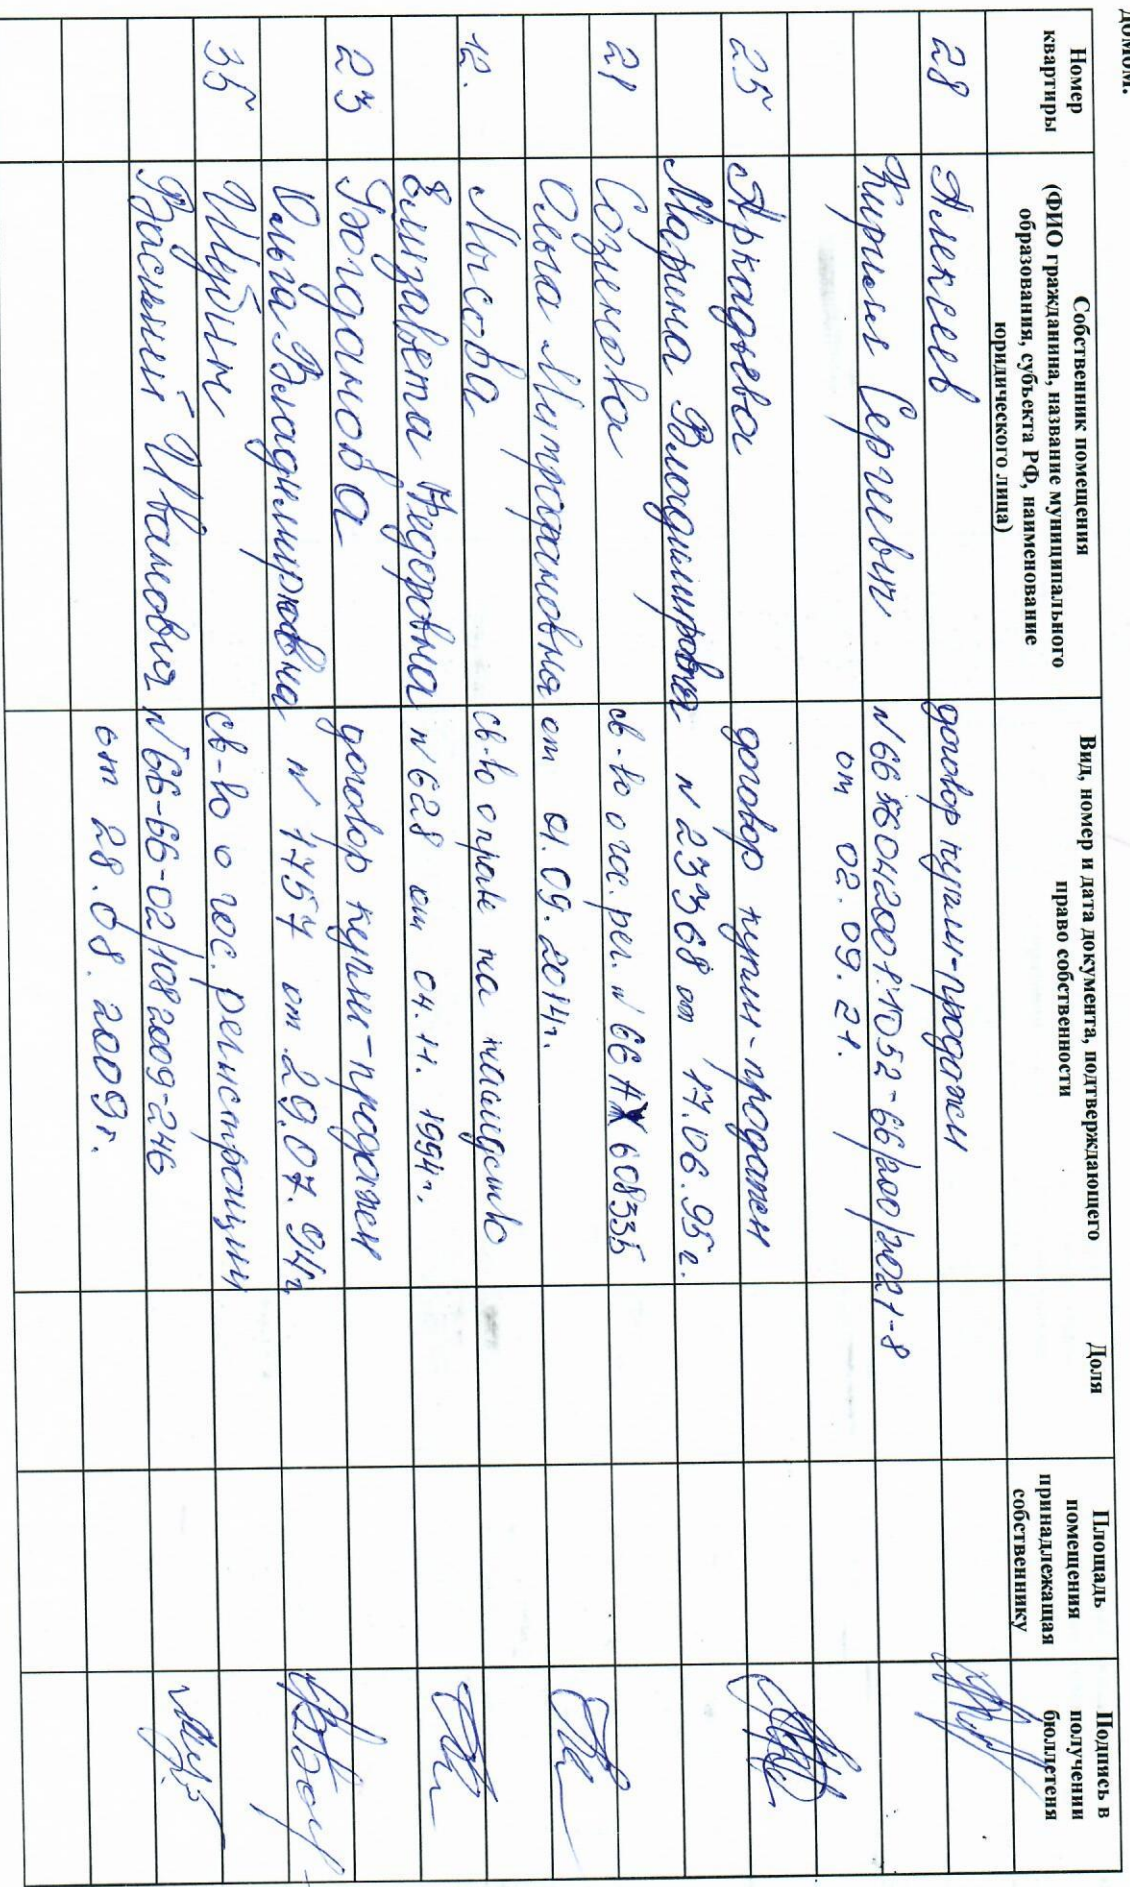 домом.
Номер квартиры
Собственник помещения
(ФИО гражданина, название муниципального
образования, субъекта РФ, наименование
юридического лица)
Вид, номер и дата документа, подтверждающего
право собственности
Доля
Площадь
помещения
принадлежащая
собственнику
Подпись в
получении
бюллетеня
28 Алексеев договор купли-продажи
Кирилл Сергеевич
от 02.09.21.
25 Аркадьева договор купли-продажи
Марина Владимировна № 23368 от 17.06.95г.
21 Созинова св-во о гос. рег. № 66 АЖ 608335
Ольга Митрофановна от 01.09.2014г.
12. Лысова св-во о праве на наследство
Елизавета Федоровна № 628 от 04.11.1994г.
23 Богданова договор купли-продажи
Ольга Владимировна № 1757 от 29.07.94г.
35 Шубин св-во о гос. регистрации
№ 66-66-02/108 2009-246
от 28.08.2009г.